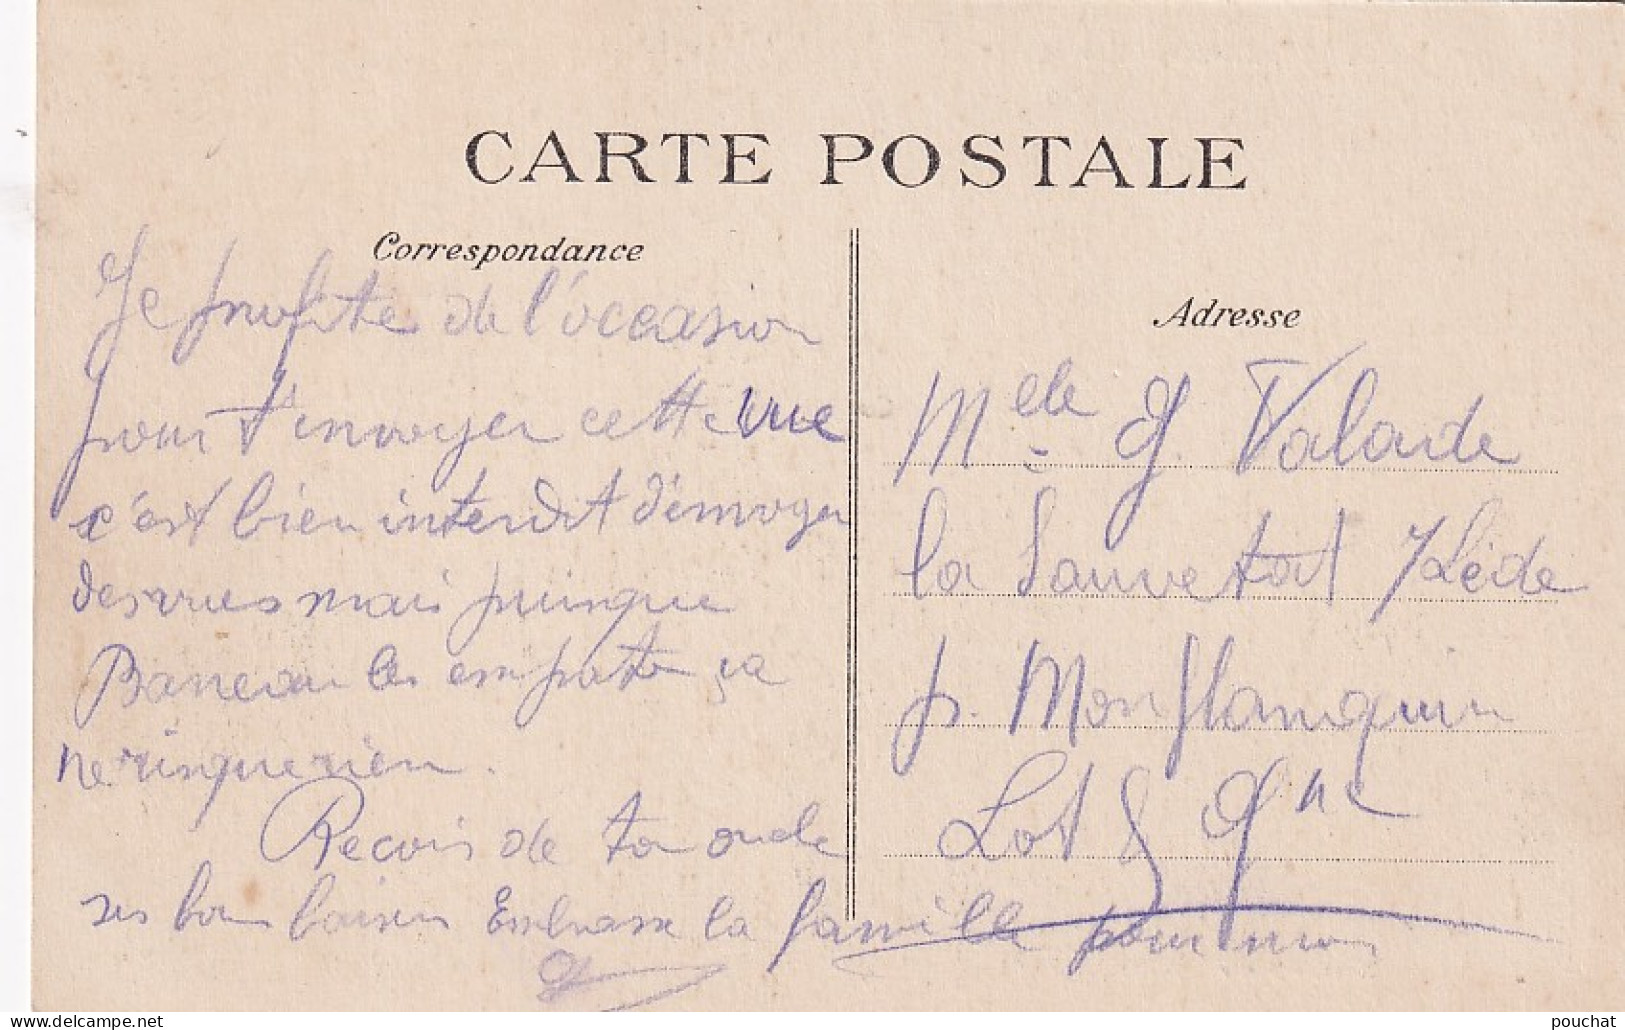 CARTE POSTALE
Correspondance
Je profite de l'occasion
pour t'envoyer cette vue
c'est bien interdit d'envoyer
des vues mais puisque
les emporte ça
ne risque rien.
Recois de ton oncle
ses bons baisers Embrasse la famille pour moi
Adresse
Melle G. Valade
la Sauvetat /Lède
p. Monflanquin
Lot & Gne
www.delcampe.net
pouchat